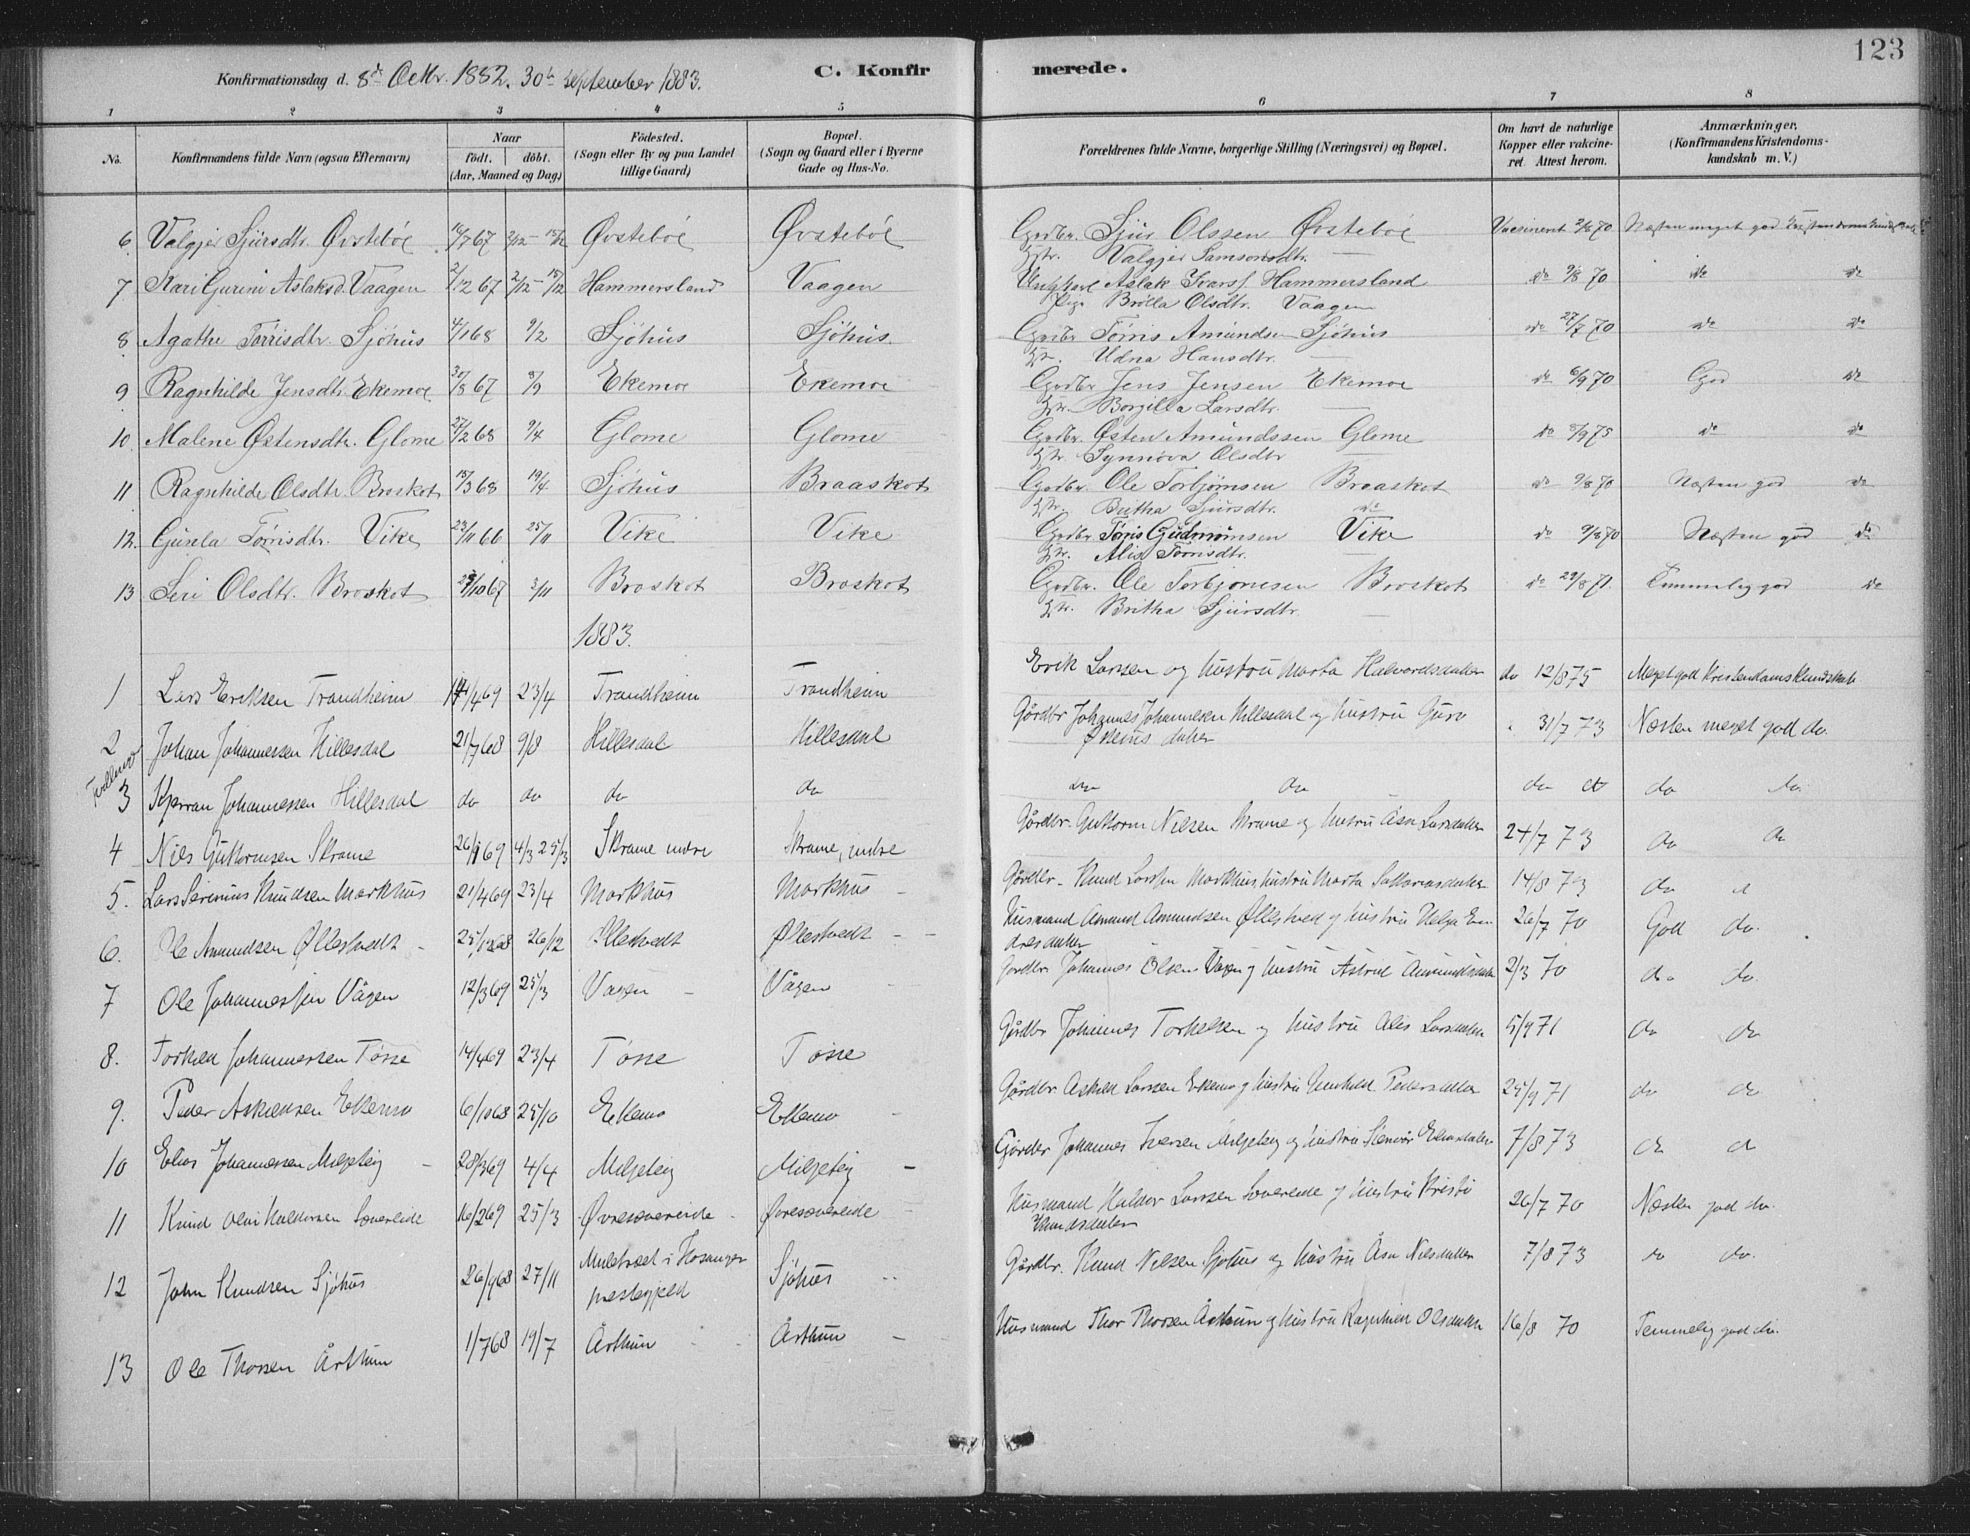 123
Konfirmationsdag d. 8de Octbr. 1882. 30te September 1883. C. Konfirmerede.
1 2 3 4 5 6 7 8
No. Konfirmandens fulde Navn (ogsaa Efternavn) Naar født. døbt. (Aar, Maaned og Dag) Fødested. (Sogn eller By og paa Landet tillige Gaard) Bopæl. (Sogn og Gaard eller i Byerne Gade og Hus-No. Forældrenes fulde Navne, borgerlige Stilling (Næringsvei) og Bopæl. Om havt de naturlige Kopper eller vakcineret. Attest herom. Anmærkninger. (Konfirmandens Kristendomskundskab m. V.)
6. Valgjer Sjursdtr. Øvstebøe 16/7 67 Øvstebøe Øvstebøe Grdbr. Sjur Olssen Øvstebøe Vaccineret 9/8 70 Næsten meget god Kristendomskundskab
Hstr. Valgjer Samsonsdtr. —
7 Kari Gurine Aslaksd. Vaagen 2/12 67 Hammersland Vaagen Ungkarl Aslak Ivarss. Hammersland do 9/8 70 do do
Pige Brölla Olsdtr. Vaagen
8 Agathe Tørrisdtr. Sjöhus 4/1 68 9/2 Sjöhus Sjöhus. Grdbr. Tørris Amundsen Sjöhus do 27/7 70 do do
Hstr. Udna Hansdtr. —
9 Ragnhilde Jensdtr. Ekemoe 30/8 67 8/9 Ekemoe Ekemoe Grdbr. Jens Jensen Ekemoe do 6/9 70 God do
Hstr. Borgilla Larsdtr. —
10. Malene Østensdtr. Glome 27/2 68 9/4 Glome Glome Grdbr. Østen Amundssen Glome do 8/9 75 do do
Hstr. Synnöva Olsdtr
11 Ragnhilde Olsdtr. Broskot 15/3 68 19/4 Sjöhus Braaskot Grdbr. Ole Torbjørnsen Braaskot do 9/8 70 Næsten god do
Hstr. Britha Sjursdtr. do
12. Gusela Tørrisdtr. Vike 23/11 66 25/11 Vike Vike Grdbr. Tørris Gudmunsen Vike do 9/8 70 Næsten god do
Hstr. Alis Tørrisdtr.
13 Siri Olsdtr. Broskot 23/10 67 3/11 Broskot Broskot Grdbr. Ole Torbjørnsen Broskot do 29/8 71. Temmelig god do
Hstr. Britha Sjursdtr. —
1883.
1 Lars Eriksen Trandheim 14/4 69 23/4 Trandheim Trandheim Erik Larsen og hustru Marta Halvordsdatter do 12/8 75 Meget god Kristendomskundskab
2 Johan Johannessen Hillesdal 21/7 68 9/8 Hillesdal Hillesdal Gårdbr Johannes Johannesen Hillesdal og hustru Guro 31/7 73 Næsten meget god do.
datter
3 Johannessen Hillesdal do do do do do do do do do do
4 Nils Guttormsen Skrame 26/1 69 4/3 25/3 Skrame indre Skrame, indre Gårdbr. Guttorm Nilsen Skrame og hustru Åsa Larsdatter 24/7 73 do do
5. Lars Severinus Knudsen Markhus 21/4 69 23/4 Markhus Markhus Gårdbr. Knud Larssen Markhus, hustru Marta datter 14/8 73 do d
6. Ole Amundsen Øllestvedt 25/12 68 26/12 Øllestvedt Øllestvedt Husmand Amund Amundsen Øllestved og hustru Helga En- 26/7 70 God do.
dresdatter
7 Ole Johannessen Vågen 12/3 69 25/3 Vagen Vågen Gårdbr. Johannes Olsen Vagen og hustru Astrid Amundsdatter 2/3 70 do do.
8. Torkel Johannessen Tösse 14/4 69 23/4 Tösse Tösse Gårdbr Johannes Torkelsen og hustru Alis Larsdatter 5/9 71 do do
9. Peder Askildsen Ekemo 6/10 68 25/10 Ekemo Ekemo Gårdbr. Askild Larsen Ekemo og hustru Gunhild Pedersdatter 25/9 71 do do
10 Elias Johannessen Miljeteig 28/3 69 4/4 Miljeteig Miljeteig Gårdbr Johannes Iversen Miljeteig og hustru Stenvör Eliasdatter 7/8 73 do d
11 Knud Olai Haldorsen Søvereide 16/2 69 25/3 Øvresøvereide Øvresøvereide Husmand Haldor Larssen Søvereide og hustru Kristi 26/7 70 Næsten god do.
Knudsdatter
12 John Knudsen Sjöhus 26/9 68 27/11 i Hosanger Præstegjeld Sjöhus Gårdbr. Knud Nilsen Sjöhus og hustru Åsa Nilsdatter 7/8 73 do do.
13 Ole Thorsen Årthun 1/7 68 19/7 Årthun Årthun Husmand Thor Thorsen Årthun og hustru Ragnhild Olsdatter 16/8 70 Temmelig god do.